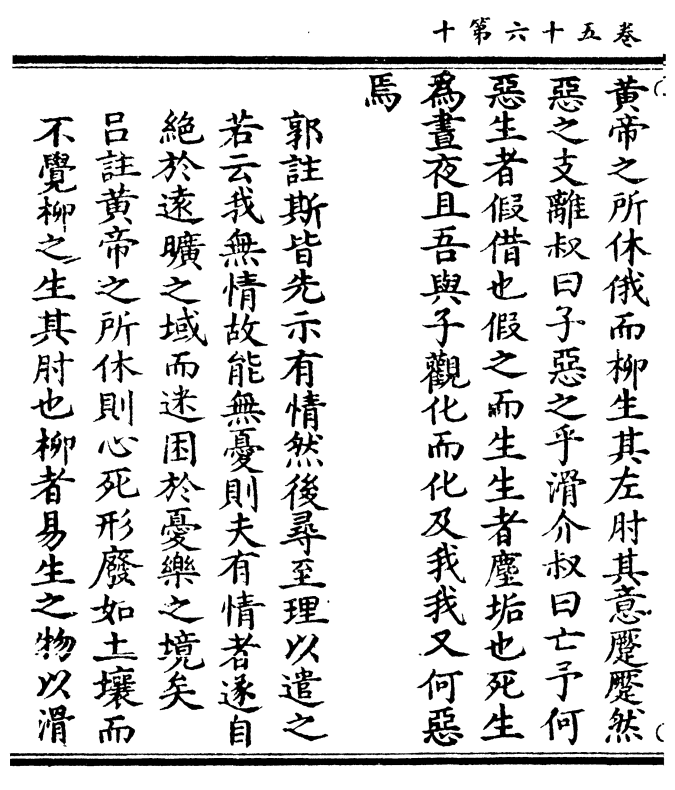 卷五十六第十
黃帝之所休俄而柳生其左肘其意蹷蹷然
惡之支離叔曰子惡之乎滑介叔曰亡予何
惡生者假借也假之而生生者塵垢也死生
為晝夜且吾與子觀化而化及我我又何惡
焉
郭註斯皆先示有情然後尋至理以遣之
若云我無情故能無憂則夫有情者遂自
絕於遠曠之域而迷困於憂樂之境矣
呂註黃帝之所休則心死形廢如土壤而
不覺柳之生其肘也柳者易生之物以滑